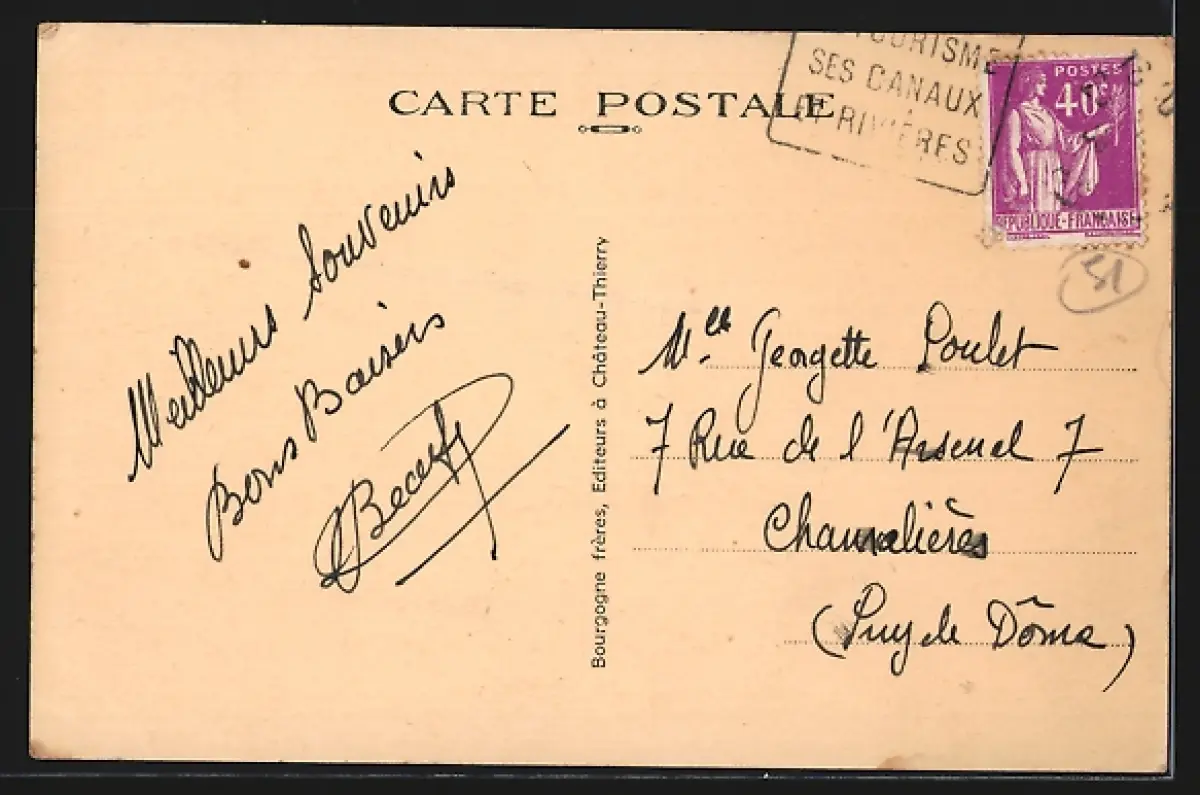 CARTE POSTALE
TOURISME
SES CANAUX
ET RIVIÈRES
POSTES
40c
REPUBLIQUE-FRANCAISE
51
Meilleurs Souvenirs
Bons Baisers
Bourgogne frères, Editeurs à Château-Thierry
Mlle Georgette Poulet
7 Rue de l'Arsenal 7
(Puy de Dôme)